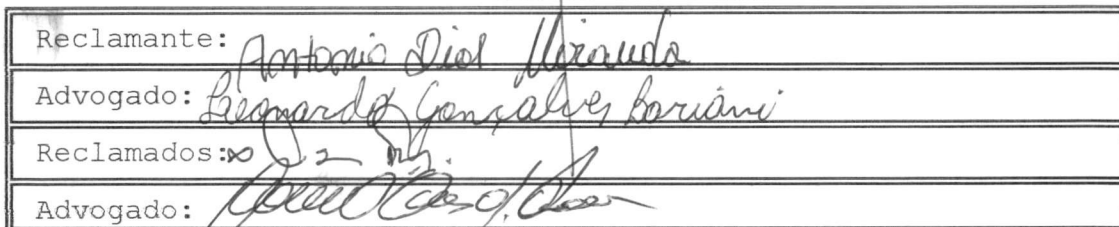 Reclamante: Antonio Dias Miranda
Advogado: Leonardo Gonçalves Bariani
Reclamados:
Advogado: